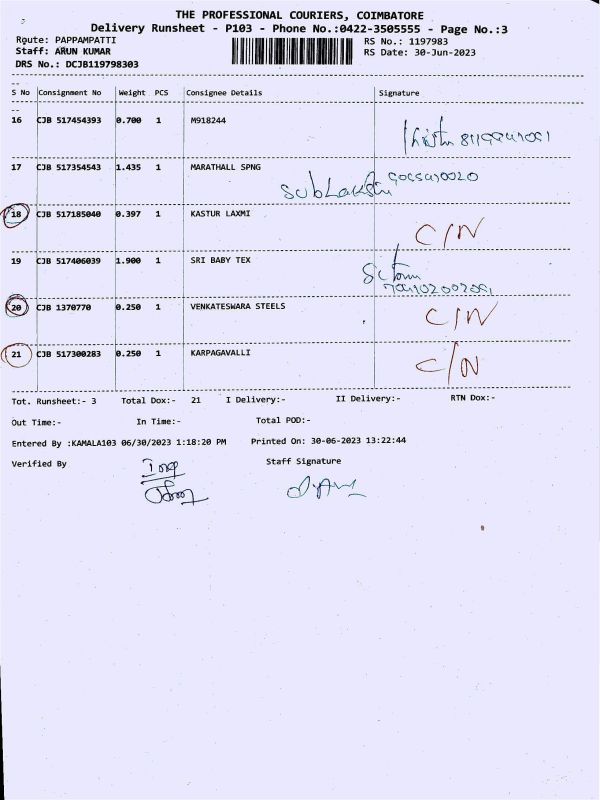 THE PROFESSIONAL COURIERS, COIMBATORE
Delivery Runsheet - P103 - Phone No.:0422-3505555 - Page No.:3
Route: PAPPAMPATTI RS No.: 1197983
Staff: ARUN KUMAR RS Date: 30-Jun-2023
DRS No.: DCJB119798303
S No Consignment No Weight PCS Consignee Details Signature
16 CJB 517454393 0.700 1 M918244
17 CJB 517354543 1.435 1 MARATHALL SPNG
18 CJB 517185040 0.397 1 KASTUR LAXMI C/N
19 CJB 517406039 1.900 1 SRI BABY TEX
20 CJB 1370770 0.250 1 VENKATESWARA STEELS C/N
21 CJB 517300283 0.250 1 KARPAGAVALLI C/N
Tot. Runsheet:- 3 Total Dox:- 21 I Delivery:- II Delivery:- RTN Dox:-
Out Time:- In Time:- Total POD:-
Entered By :KAMALA103 06/30/2023 1:18:20 PM Printed On: 30-06-2023 13:22:44
Verified By Staff Signature